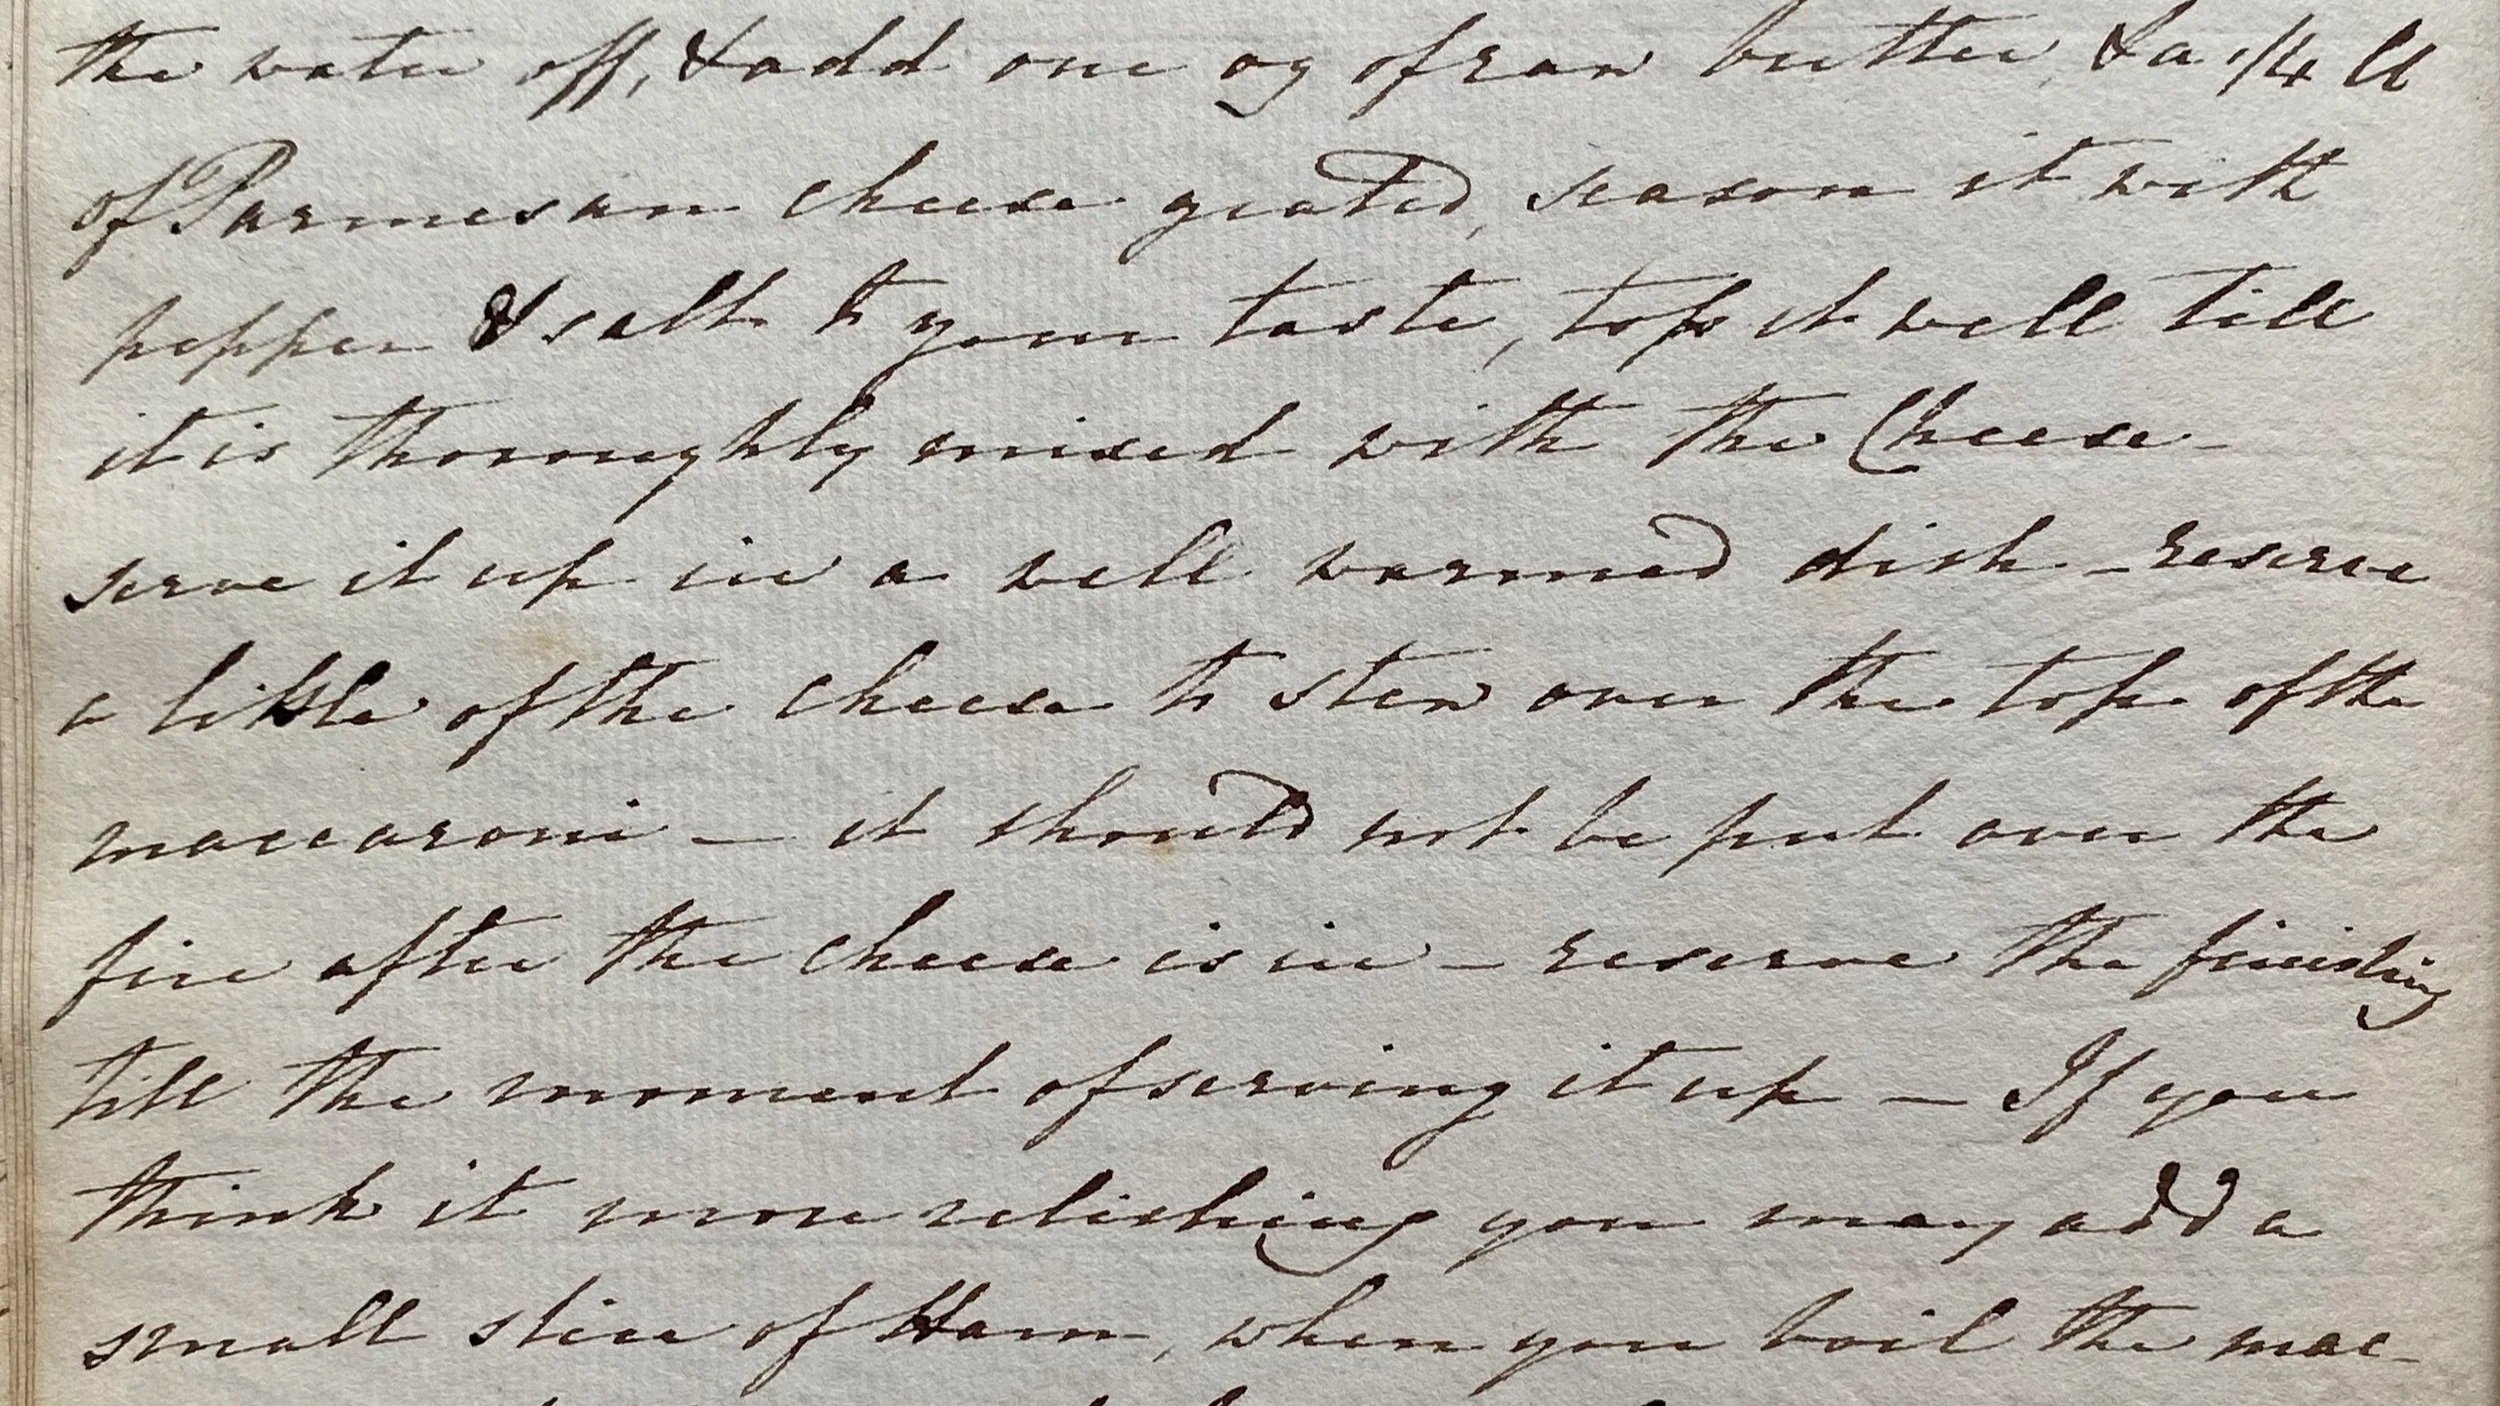 the water off, & add one oz of raw butter, & a 1/4 lb
of Parmesan cheese grated, season it with
pepper & salt to your taste, toss it well till
it is thoroughly mixed with the Cheese -
serve it up in a well warmed dish - reserve
a little of the cheese to stew over the top of the
maccaroni - it should not be put over the
fire after the cheese is in - reserve the finishing
till the moment of serving it up - If you
think it more relishing you may add a
small slice of Ham, when you boil the mac-